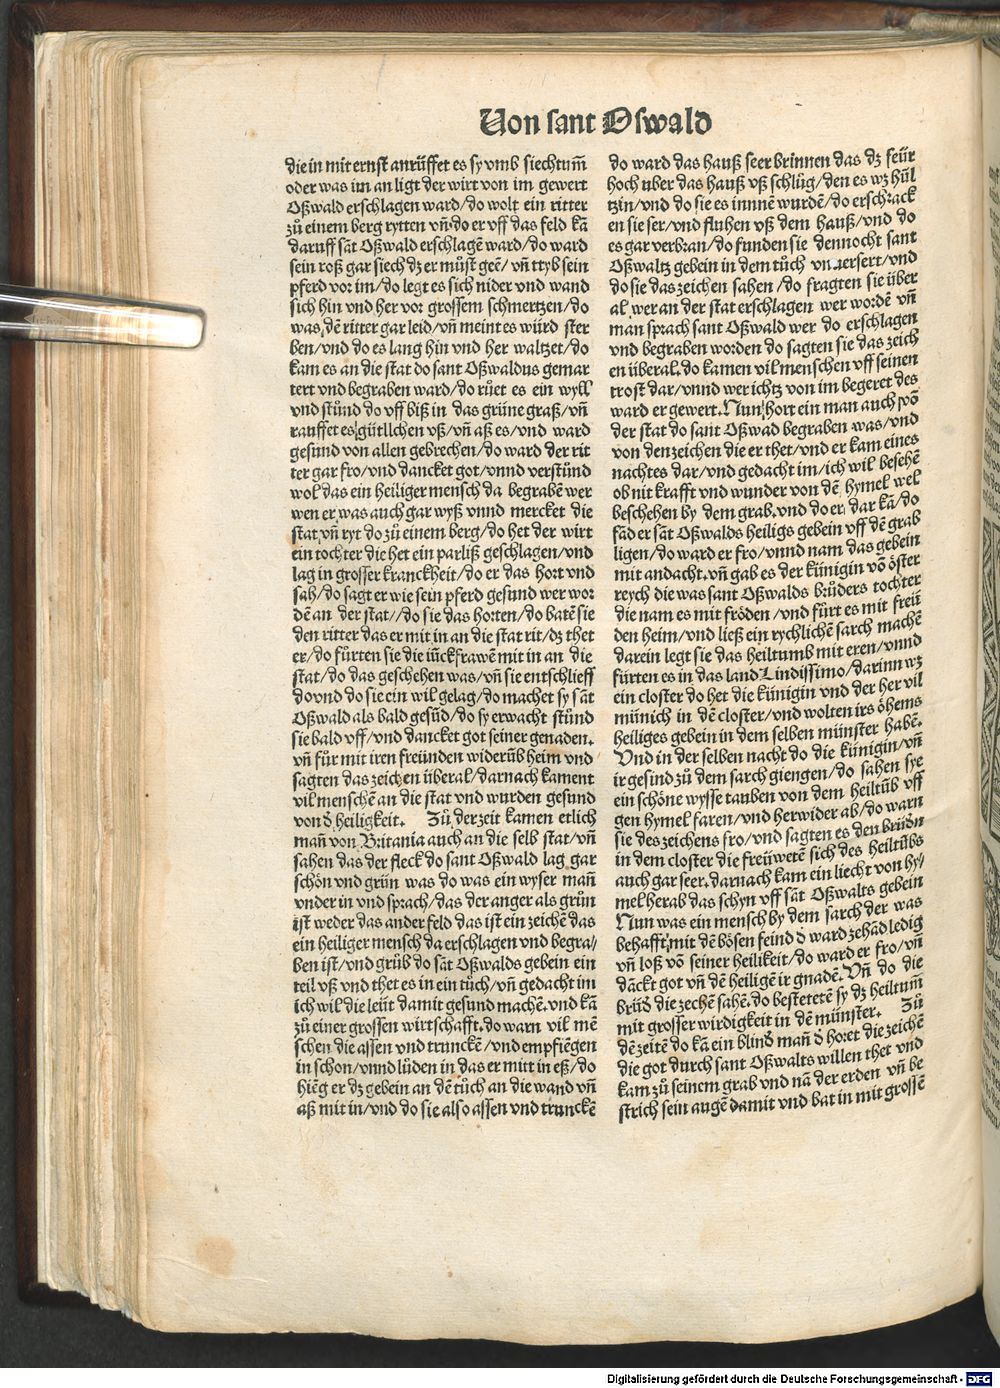 Von sant Oswald
die in mit ernst anrüffet es sy vmb siechtum̃
oder was im an ligt der wirt von im gewert
Oßwald erschlagen ward/do wolt ein ritter
zů einem berg rytten vñ do er vff das feld kã
daruff sãt Oßwald erschlagẽ ward/do ward
sein roß gar siech dz er můst geẽ/vñ ttyb sein
pferd vor im/do legt es sich nider vnd wand
sich hin vnd her vor grossem schmertzen/do
was dẽ ritter gar leid/vñ meint es würd ster
ben/vnd do es lang hin vnd her waltzet/do
kam es an die stat do sant Oßwaldus gemar
tert vnd begraben ward/do růet es ein wyll
vnd stůnd do vff biß in das grüne graß/vñ
rauffet es gütllchen vß/vñ aß es/vnd ward
gesund von allen gebrechen/do ward der rit
ter gar fro/vnd dancket got/vnnd verstůnd
wol das ein heiliger mensch da begrabẽ wer
wen er was auch gar wyß vnnd mercket die
stat vñ ryt do zů einem berg/do het der wirt
ein tochter die het ein parliß geschlagen/vnd
lag in grosser kranckheit/do er das hort vnd
sah/do sagt er wie sein pferd gesund wer wor
dẽ an der stat//do sie das horten/do batẽ sie
den ritter das er mit in an die stat rit/dz thet
er/do fůrten sie die iũckfrawẽ mit in an die
stat/do das geschehen was/vñ sie entschlieff
do vnd do sie ein wil gelag/do machet sy sãt
Oßwald als bald gesũd/do sy erwacht stůnd
sie bald vff/vnd dancket got seiner genaden.
vñ fůr mit iren freünden widerũb heim vnd
sagten das zeichen überal/darnach kament
vil menschẽ an die stat vnd wurden gesund
von d̕ heiligkeit. Zů der zeit kamen etlich
mañ von Britania auch an die selb stat/vñ
sahen das der fleck do sant Oßwald lag gar
schön vnd grün was do was ein wyser mañ
vnder in vnd sprach/das der anger als grün
ist weder das ander feld das ist ein zeichẽ das
ein heiliger mensch da erschlagen vnd begra/
ben ist/vnd grůb do sãt Oßwalds gebein ein
teil vß vnd thet es in ein tůch/vñ gedacht im
ich wil die leüt damit gesund machẽ. vnd kã
zů einer grossen wirtschafft. do warn vil mẽ
schen die assen vnd trunckẽ/vnd empfiẽgen
in schon/vnnd lůden in das er mitt in eß/do
hiẽg er dz gebein an dẽ tůch an die wand vñ
aß mit in/vnd do sie also assen vnd trunckẽ
do ward das hauß seer brinnen das dz feür
hoch uber das hauß vß schlůg/den es wz hül
tzin/vnd do sie es innnẽ wurdẽ/do erschrack
en sie ser/vnd fluhen vß dem hauß/vnd do
es gar verbran/do funden sie dennocht sant
Oßwaltz gebein in dem tůch vnuersert/vnd
do sie das zeichen sahen/do fragten sie über
al wer an der stat erschlagen wer wordẽ vñ
man sprach sant Oßwald wer do erschlagen
vnd begraben worden do sagten sie das zeich
en überal. do kamen vil menschen vff seinen
trost dar/vnnd wer ichtz von im begeret des
ward er gewert. Nun hort ein man auch võ
der stat do sant Oßwad begraben was/vnd
von den zeichen die er thet/vnd er kam eines
nachtes dar/vnd gedacht im/ich wil besehẽ
ob nit krafft vnd wunder von dẽ hymel wel
beschehen by dem grab. vnd do er dar kã/do
fãd er sãt Oßwalds heiligs gebein vff dẽ grab
ligen/do ward er fro/vnnd nam das gebein
mit andacht. vñ gab es der künigin võ öster
reych die was sant Oßwalds brůders tochter
die nam es mit fröden/vnd fůrt es mit freü
den heim/vnd ließ ein rychlichẽ sarch machẽ
darein legt sie das heiltumb mit eren/vnnd
fůrten es in das land Lindissimo/darinn wz
ein closter do het die künigin vnd der her vil
münich in dẽ closter/vnd wolten irs öhems
heiliges gebein in dem selben münster habẽ.
Vnd in der selben nacht do die künigin/vñ
ir gesind zů dem sarch giengen/do sahen sye
ein schöne wysse tauben von dem heiltũb vff
gen hymel faren/vnd herwider ab/do warn
sie des zeichens fro/vnd sagten es den brůdn̄
in dem closter die freüwetẽ sich des heiltũbs
auch gar seer. darnach kam ein liecht von hy/
mel herab das schyn vff sãt Oßwalts gebein
Nun was ein mensch by dem sarch der was
behafft mit dẽ bösen feind d̕ ward zehãd ledig
vñ loß võ seiner heilikeit/do ward er fro/vñ
dãckt got vñ dẽ heiligẽ ir gnadẽ. Vñ do die
brůd̕ die zechẽ sahẽ. do bestetetẽ sy dz heiltum̃
mit grosser wirdigkeit in dẽ münster. Zů
dẽ zeitẽ do kã ein blind̕ mañ d̕ horet die zeichẽ
die got durch sant Oßwalts willen thet vnd
kam zů seinem grab vnd nã der erden vñ be
strich sein augẽ damit vnd bat in mit grossẽ
Digitalisierung gefördert durch die Deutsche Forschungsgemeinschaft - DFG